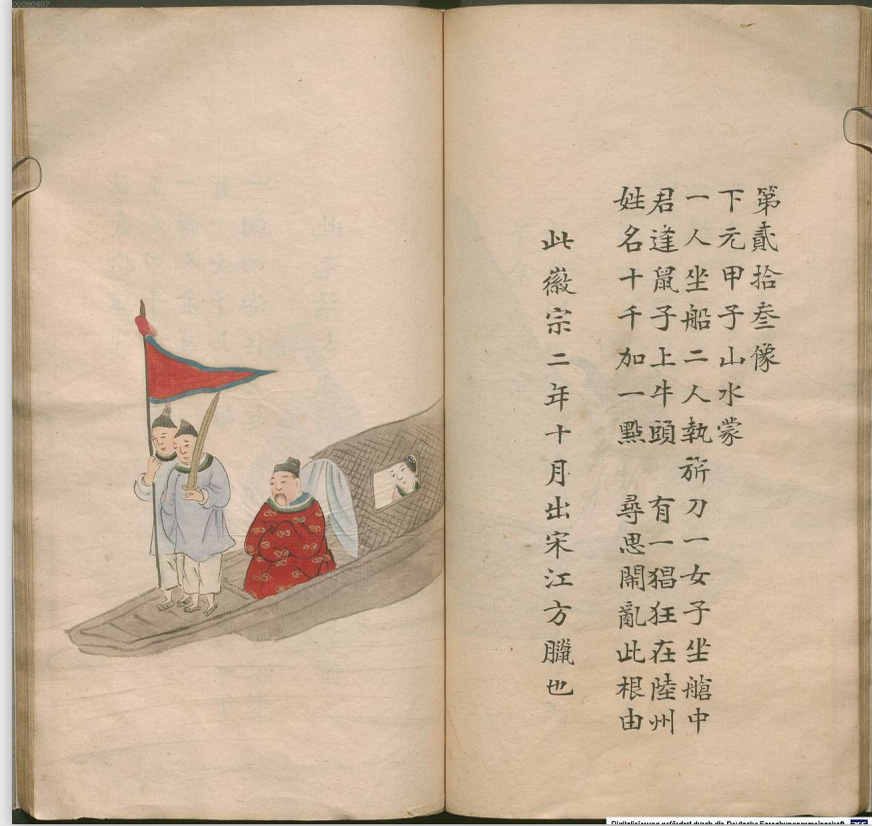 第貳拾叁像
下元甲子山水蒙
一人坐船二人執旂刀一女子坐艙中
君逢鼠子上牛頭 有一猖狂在陸州
姓名十千加一點 尋思鬧亂此根由
此徽宗二年十月出宋江方臘也